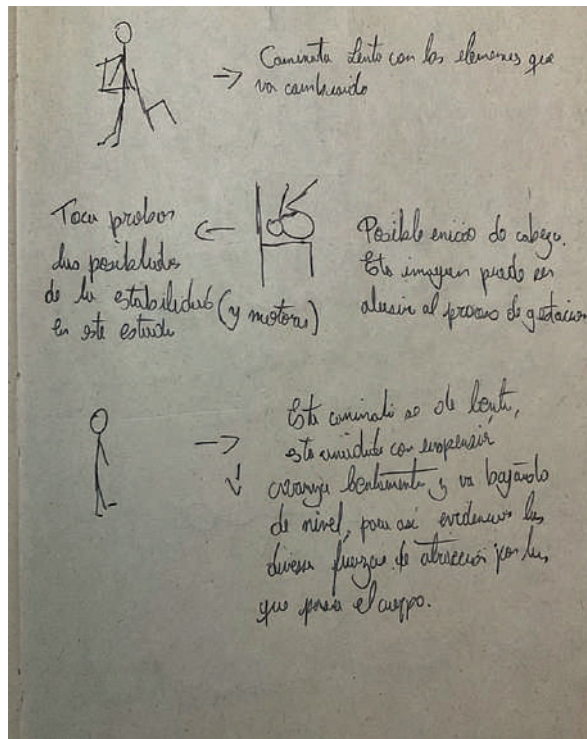 → Caminata lenta con los elementos que
va cambiando
Toca probar
las posibilidades
de la estabilidad (y motora)
en este estado
Posible inicio de cabeza.
Esta imagen puede ser
alusiva al proceso de gestación
→ Esta caminata es de lento,
esta unida con suspensión
avanza lentamente y va bajando
de nivel, para así evidenciar las
diversas fuerzas de atracción por las
que pasa el cuerpo.